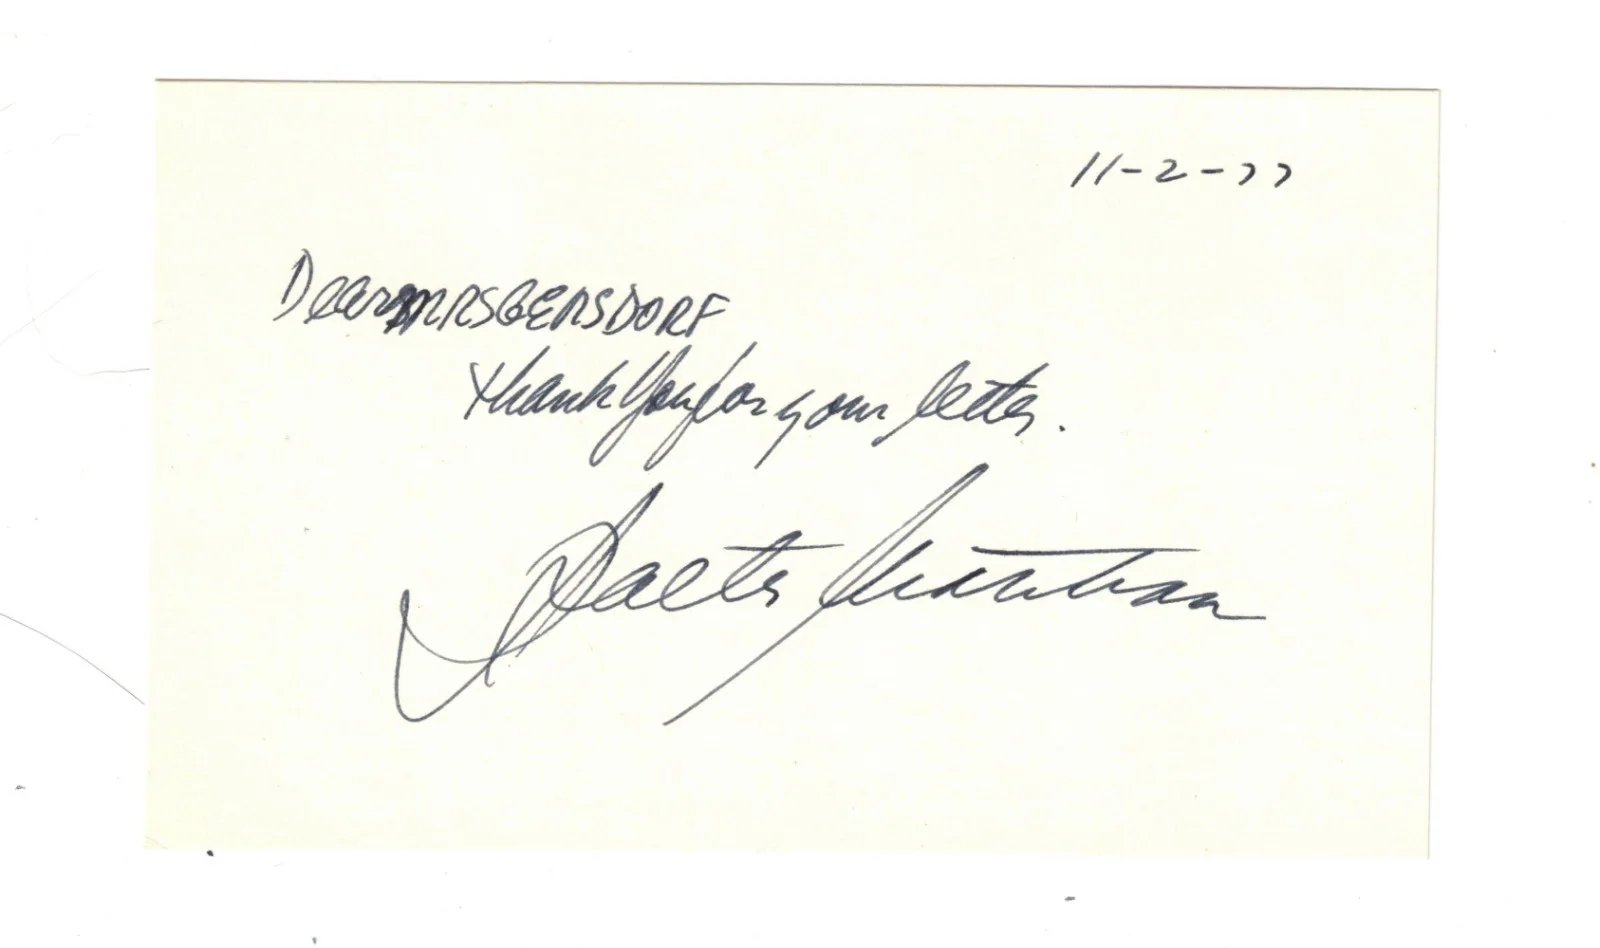 11-2-77
Dear MRS GERSDORF
Thank you for your letter.
Walter